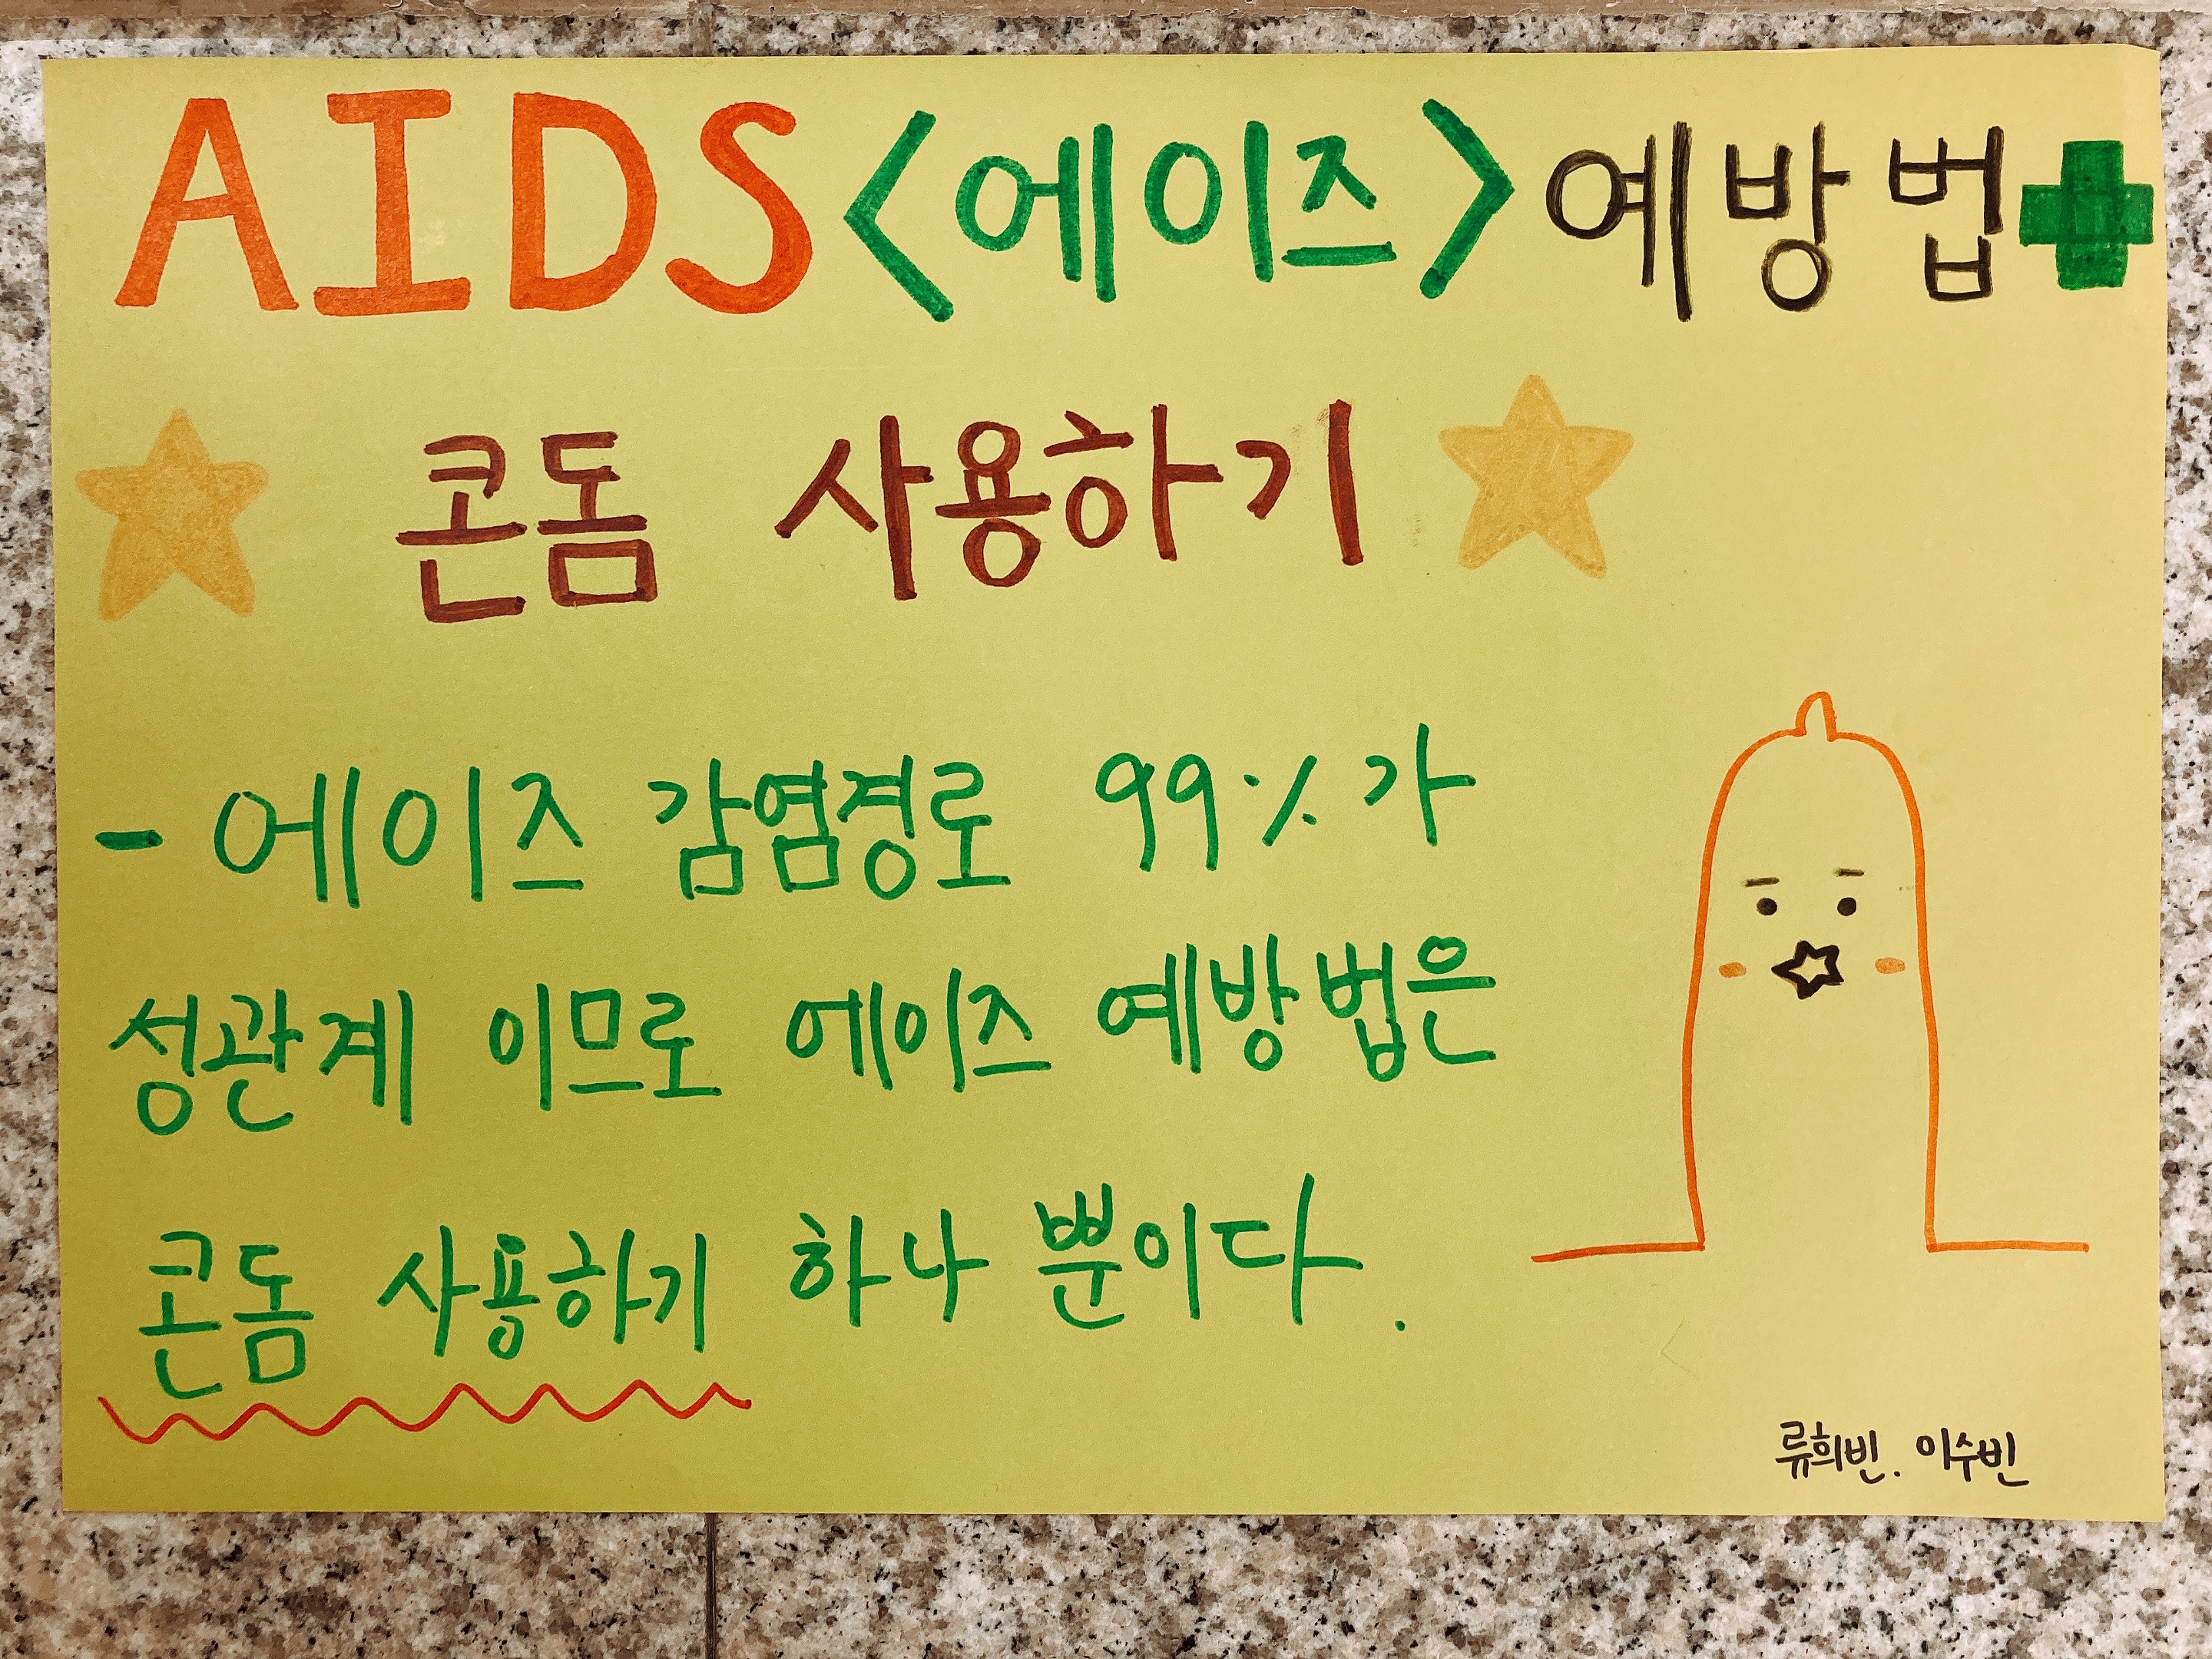 AIDS <에이즈> 예방법
콘돔 사용하기
- 에이즈 감염경로 99%가
성관계 이므로 에이즈 예방법은
콘돔 사용하기 하나 뿐이다.
류희빈. 이수빈